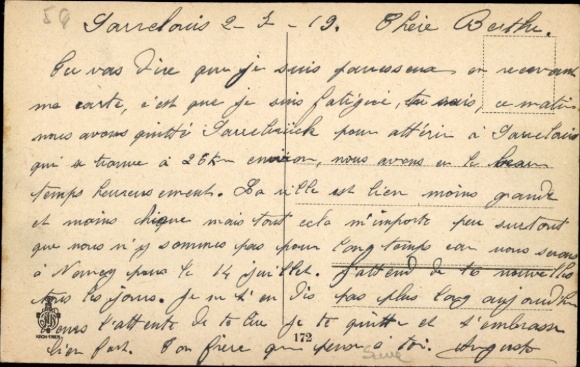 58
Sarrelouis 2-7-19. Chère Berthe.
Tu vas dire que je suis paresseux en recevant
ma carte, c'est que je suis fatigué, tu sais, ce matin
nous avons quitté Sarrebrück pour attérir à Sarrelouis
qui se trouve à 26 km environ, nous avons eu le beau
temps heureusement. La ville est bien moins grande
et moins chique mais tout cela m'importe peu surtout
que nous n'y sommes pas pour longtemps car nous serons
à pour le 14 juillet. J'attend de te nouvelles
tous les jours. Je ne t'en dis pas plus long aujourd'hui
Dans l'attente de te lire je te quitte et t'embrasse
bien fort. Ton frère qui pense à toi. Auguste
172